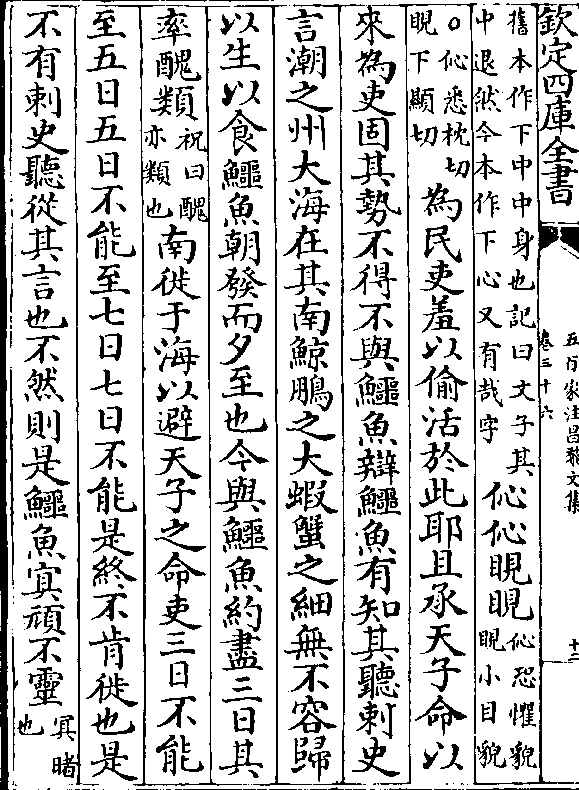 欽定四庫全書
五百家注昌黎文集
卷三十六
十二
舊本作下中中身也記曰文子其
中退然今本作下心又有哉字
伈伈睍睍
伈恐懼貌
睍小目貌
○伈悉枕切
睍下顯切
為民吏羞以偷活於此耶且承天子命以
來為吏固其勢不得不與鱷魚辯鱷魚有知其聽刺史
言潮之州大海在其南鯨鵬之大蝦蟹之細無不容歸
以生以食鱷魚朝發而夕至也今與鱷魚約盡三日其
率醜類
祝曰醜
亦類也
南徙于海以避天子之命吏三日不能
至五日五日不能至七日七日不能是終不肯徙也是
不有刺史聽從其言也不然則是鱷魚冥頑不靈
冥暗
也